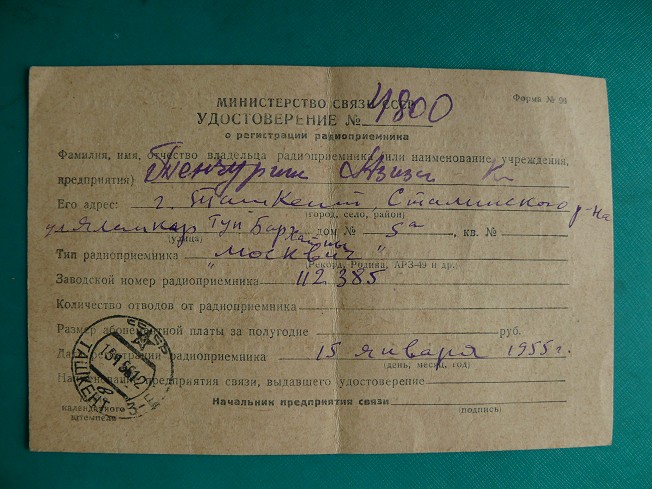 Форма № 90
МИНИСТЕРСТВО СВЯЗИ СССР
УДОСТОВЕРЕНИЕ № 4800
о регистрации радиоприемника
Фамилия, имя, отчество владельца радиоприемника (или наименование учреждения,
предприятия)
Его адрес: г. Ташкент, Сталинского р-на
(город, село, район)
ул. дом № 5а, кв. №
(улица)
Тип радиоприемника "Москвич"
(Рекорд, Родина, АРЗ-49 и др.)
Заводской номер радиоприемника 112385
Количество отводов от радиоприемника
Размер абонентной платы за полугодие руб.
Дата регистрации радиоприемника 15 января 1955 г.
(день, месяц, год)
Наименование предприятия связи, выдавшего удостоверение
Начальник предприятия связи
(подпись)
календарного
штемпеля
ТАШКЕНТ